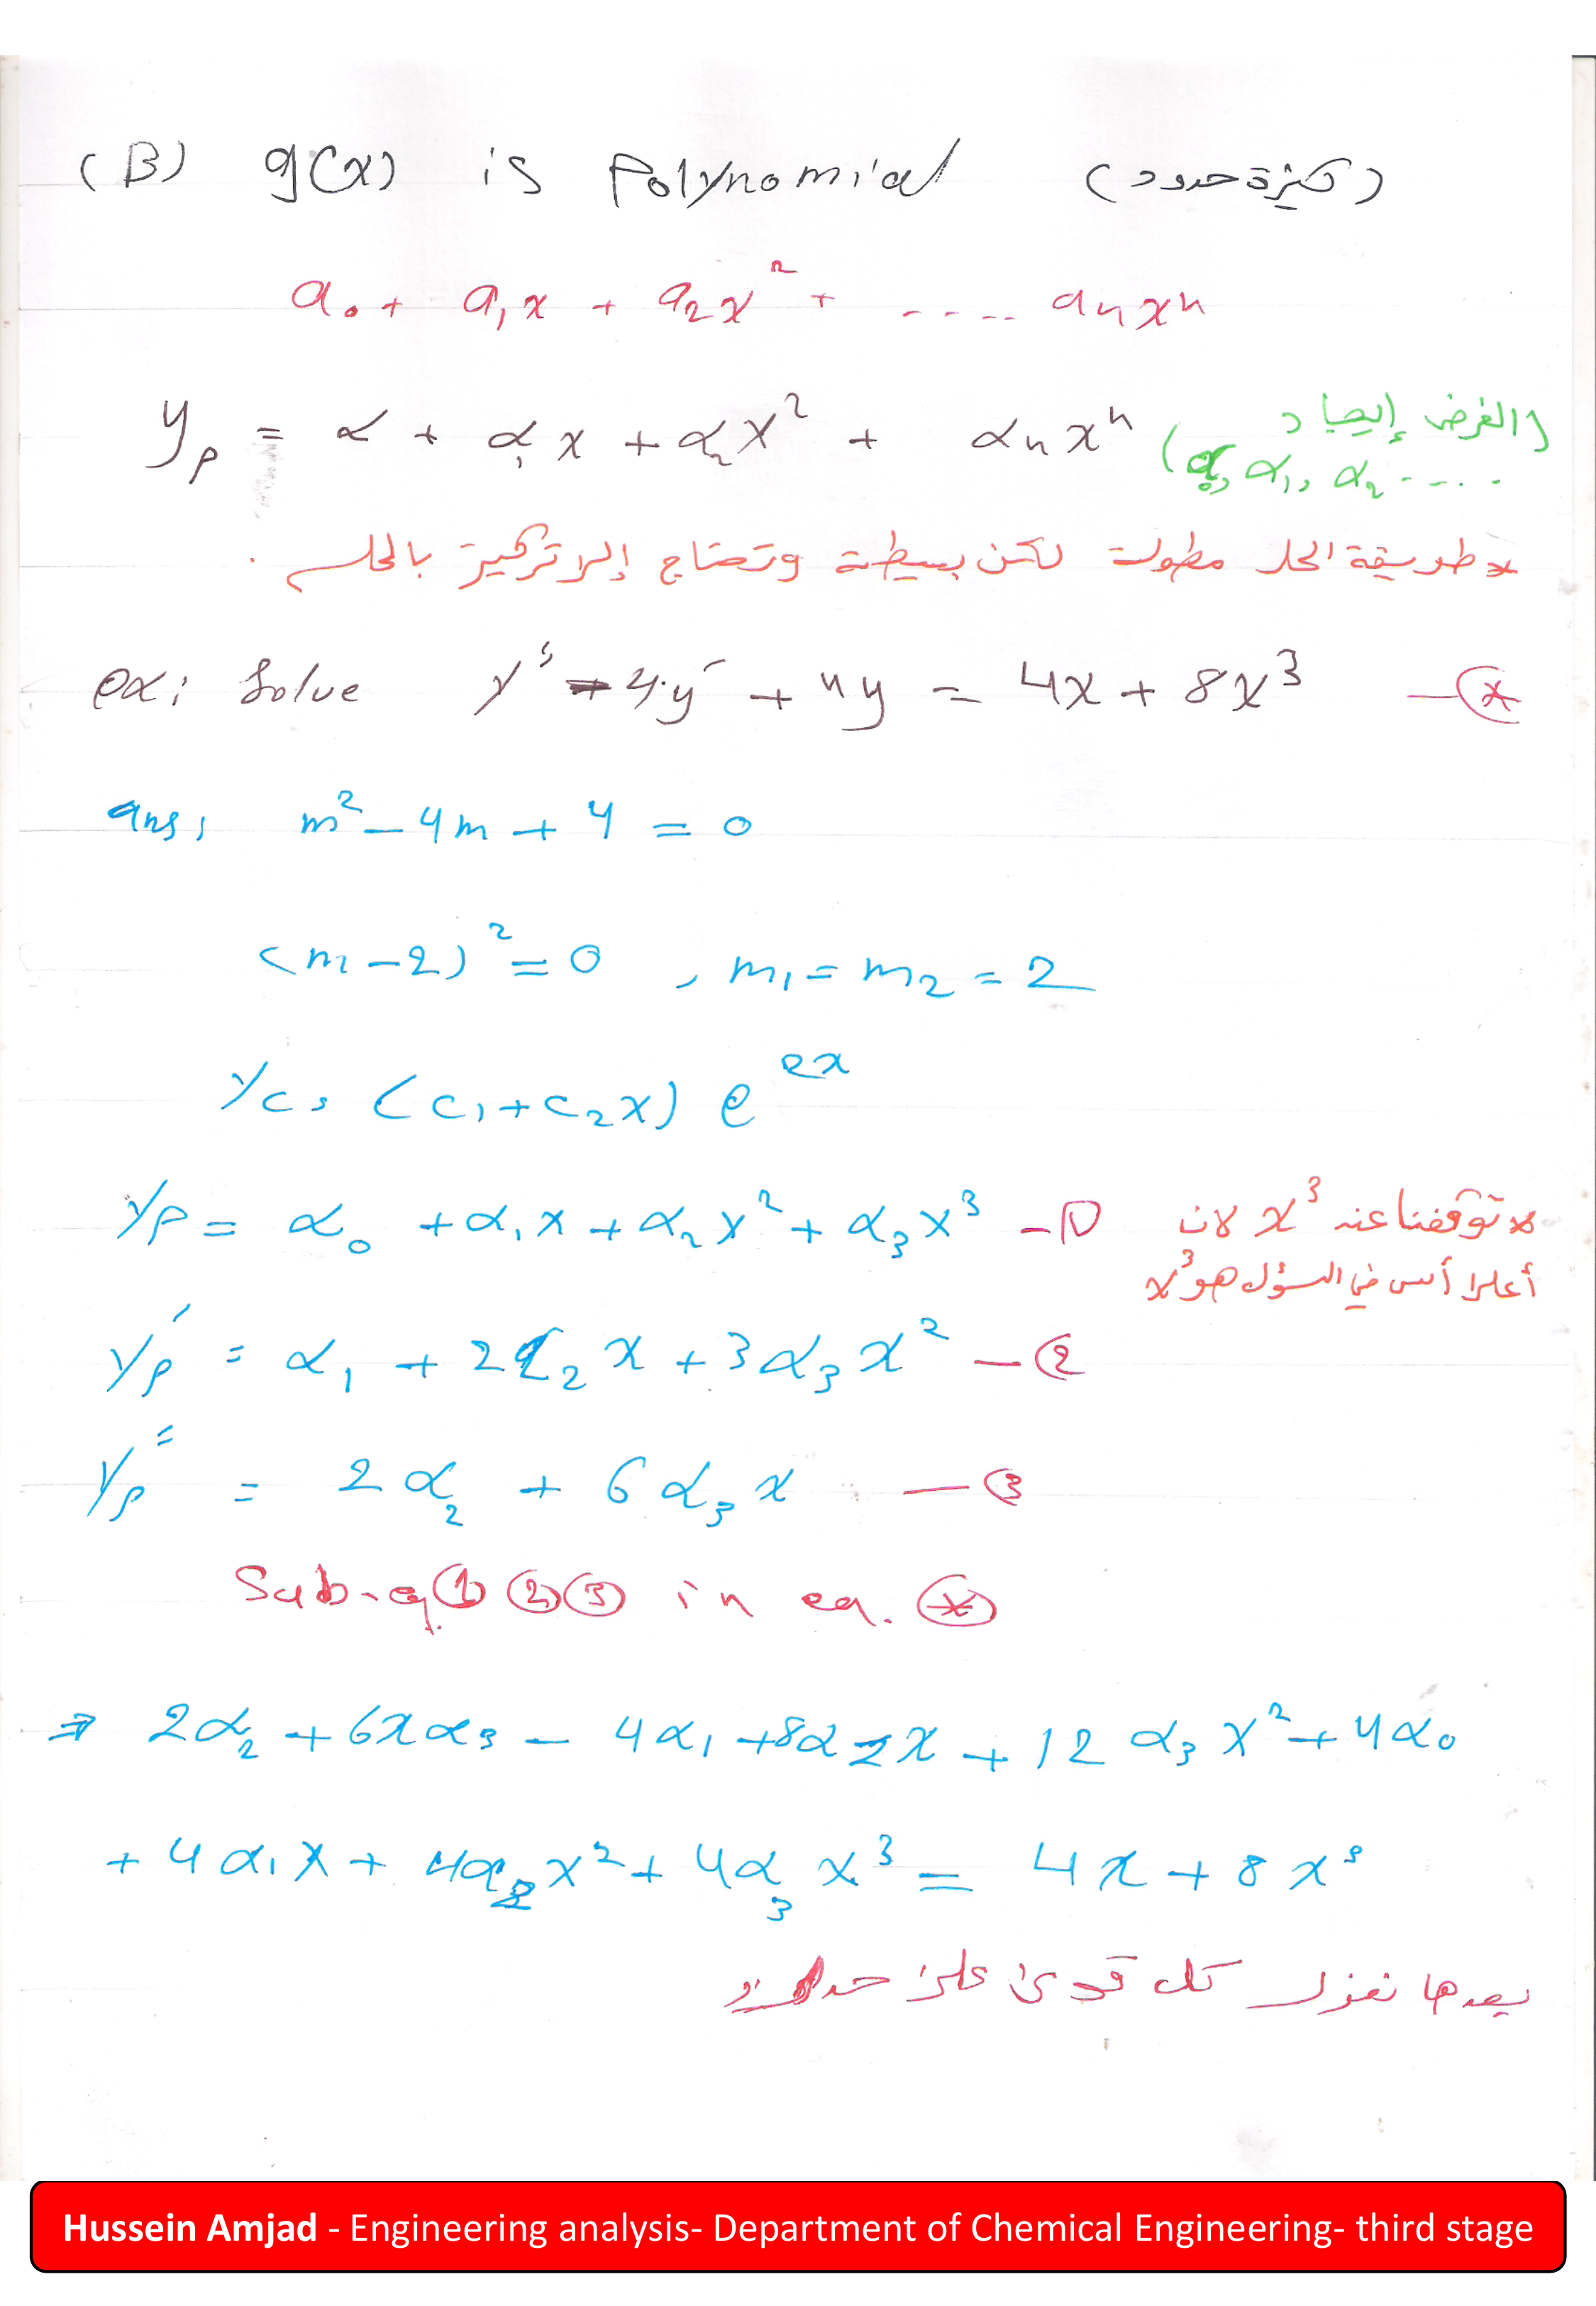 (B) g(x) is Polynomial (كثيرة حدود)
a₀ + a₁x + a₂x² + .... aₙxⁿ
yₚ = α + α₁x + α₂x² + αₙxⁿ (الغرض إيجاد
α₀, α₁, α₂ ....)
* طريقة الحل مطولة لكن بسيطة وتحتاج إلى تركيز بالحل .
ex: Solve y'' - 4y' + 4y = 4x + 8x³ — (*)
ans, m² - 4m + 4 = 0
(m - 2)² = 0 , m₁ = m₂ = 2
yc = (c₁ + c₂x) e²ˣ
yp = α₀ + α₁x + α₂x² + α₃x³ — ① * توقفنا عند x³ لان
أعلى أس في السؤل هو x³
yp' = α₁ + 2α₂x + 3α₃x² — ②
yp'' = 2α₂ + 6α₃x — ③
Sub. eq ① ② ③ in eq. (*)
⇒ 2α₂ + 6xα₃ - 4α₁ + 8α₂x + 12α₃x² + 4α₀
+ 4α₁x + 4α₂x² + 4α₃x³ = 4x + 8x³
بعدها نعزل كل قوى على حدا
Hussein Amjad - Engineering analysis- Department of Chemical Engineering- third stage